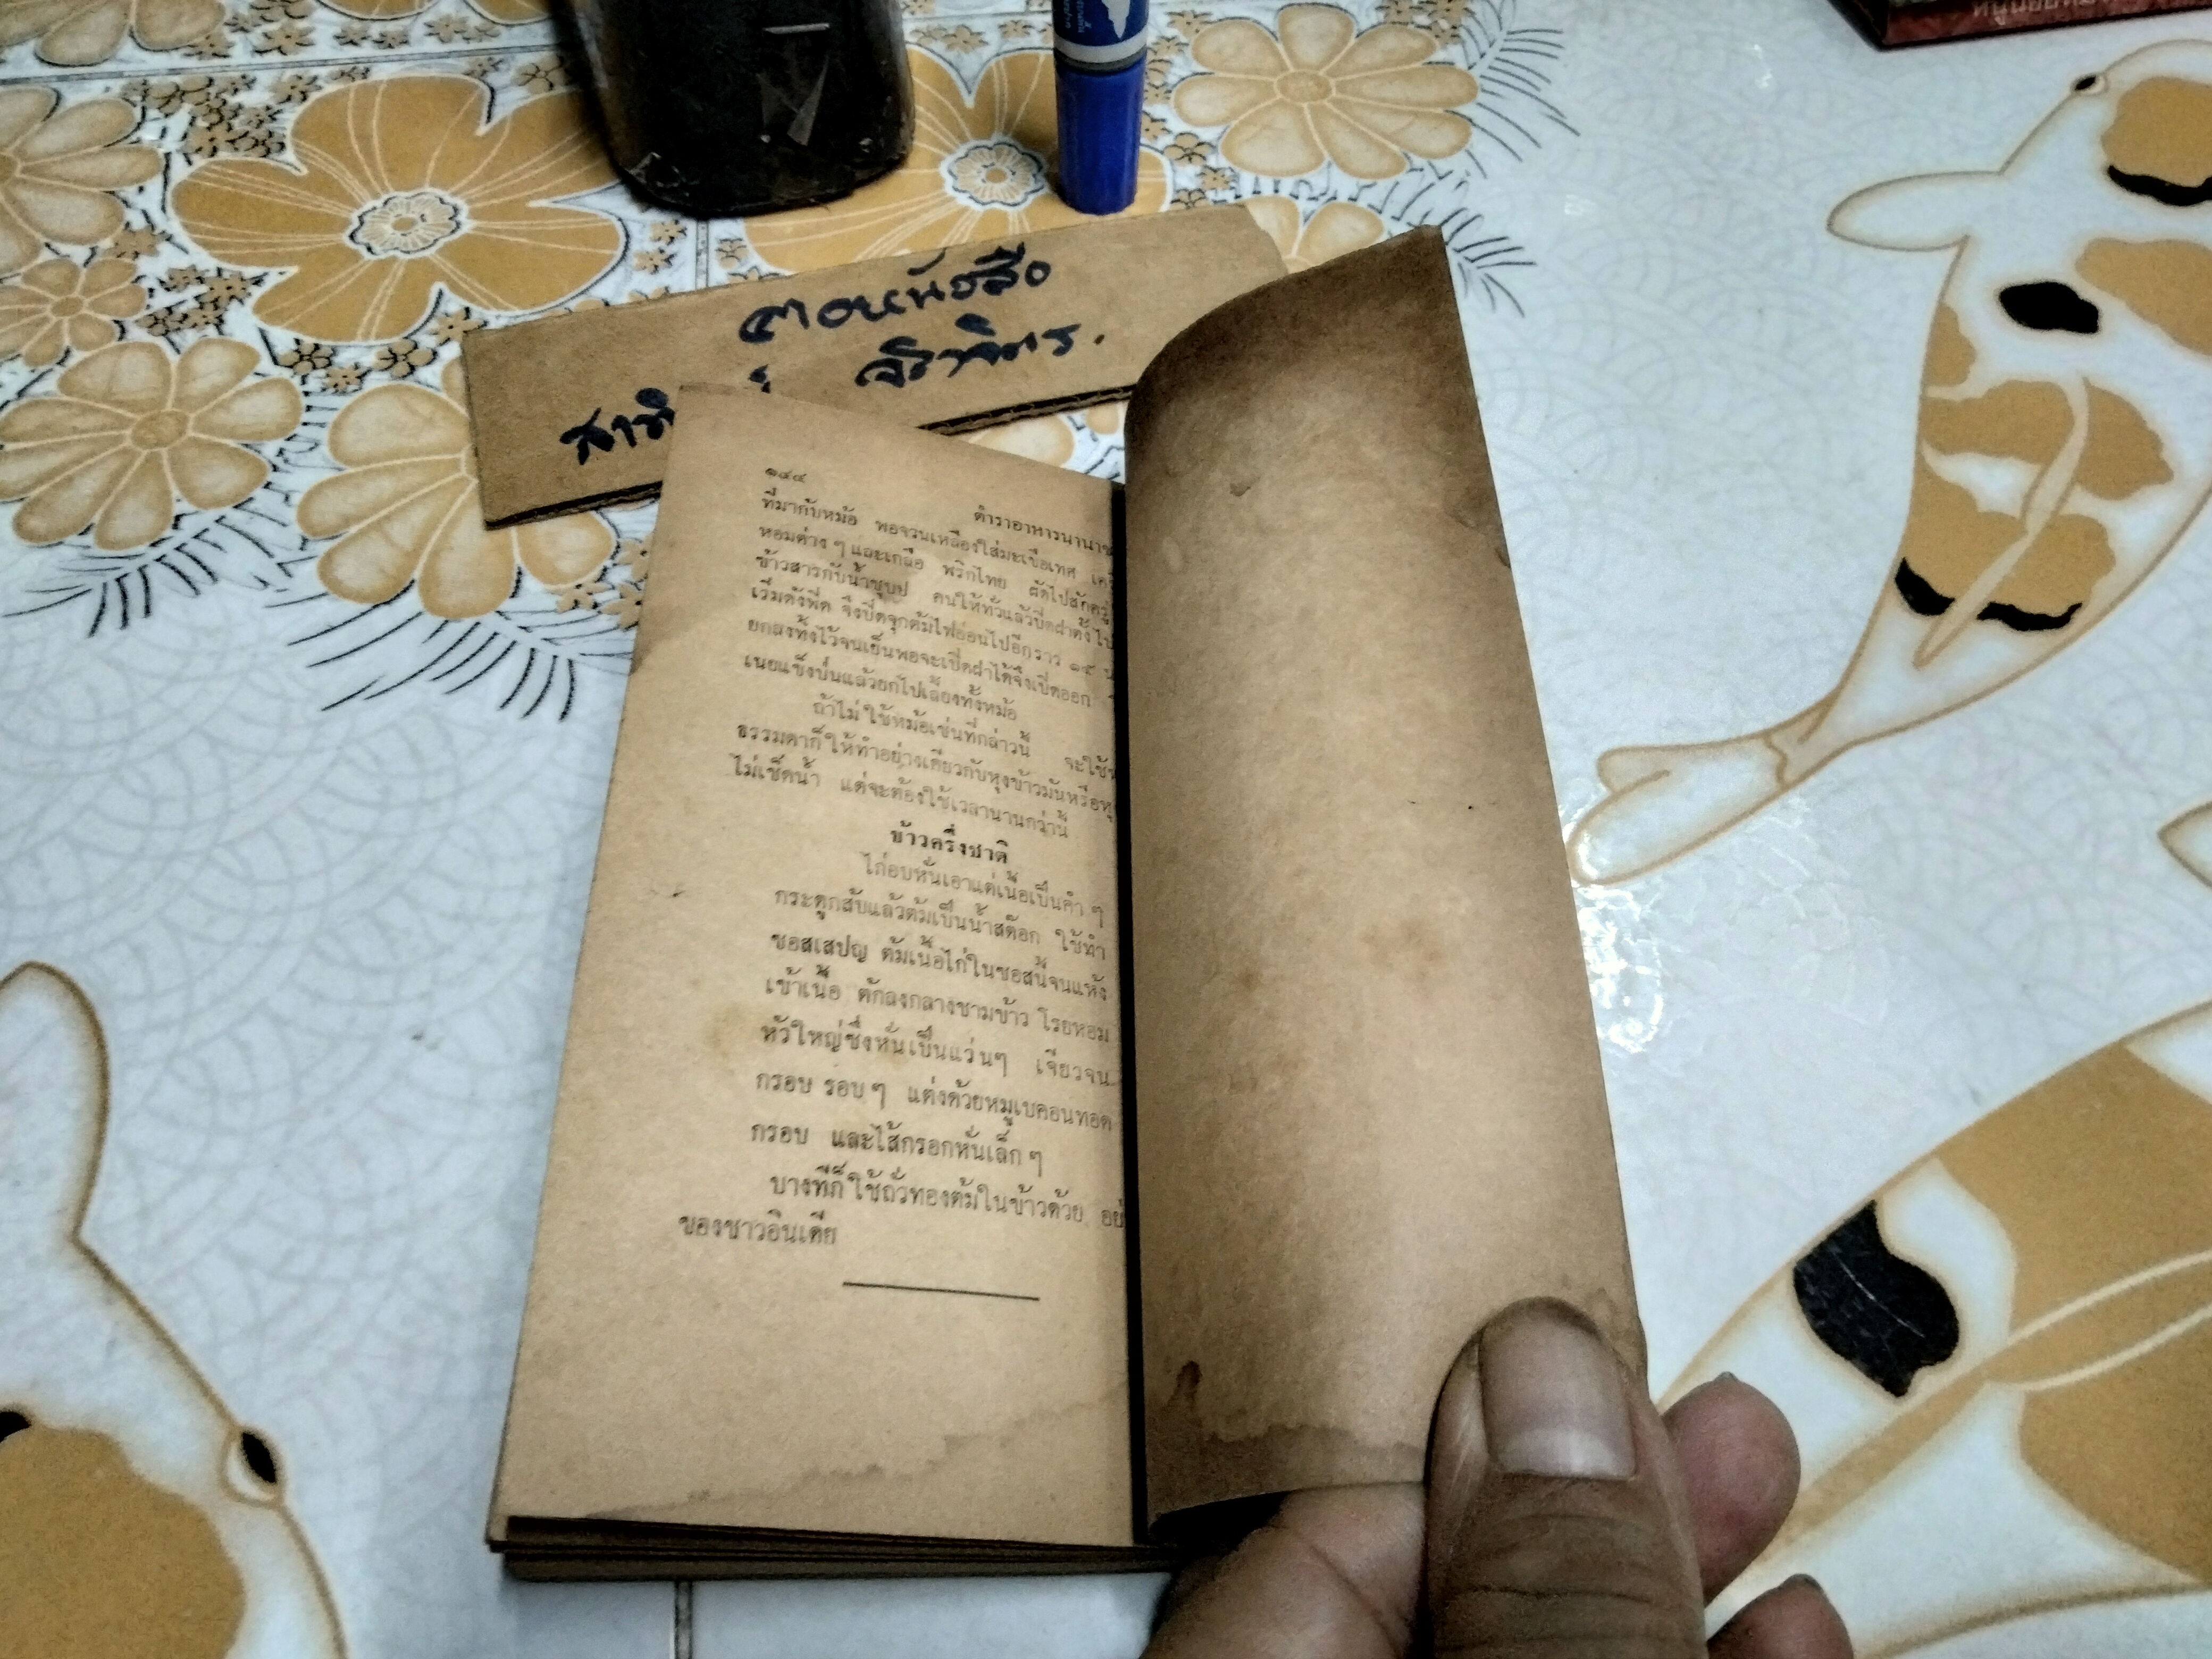 ตอบหนังสือ
จิราจิตร.
๑๔๔
ตำราอาหารนานาช
ที่มากับหม้อ พอจวนเหลืองใส่มะเขือเทศ เค
หอมต่าง ๆ และเกลือ พริกไทย ผัดไปสักครู่
ข้าวสารกับน้ำซุบป คนให้ทั่วแล้วปิดฝาตั้งไป
เริ่มดังฟีด จึงปิดจุกต้มไฟอ่อนไปอีกราว ๑๕ น
ยกลงทิ้งไว้จนเย็นพอจะเปิดฝาได้จึงเปิดออก
เนยแข็งป่นแล้วยกไปเลี้ยงทั้งหม้อ
ถ้าไม่ใช้หม้อเช่นที่กล่าวนี้ จะใช้ห
ธรรมดาก็ให้ทำอย่างเดียวกับหุงข้าวมันหรือหุ
ไม่เช็ดน้ำ แต่จะต้องใช้เวลานานกว่านี้
ข้าวครึ่งชาติ
ไก่อบหั่นเอาแต่เนื้อเป็นคำ ๆ
กระดูกสับแล้วต้มเป็นน้ำสต๊อก ใช้ทำ
ซอสเสปญ ต้มเนื้อไก่ในซอสนี้จนแห้ง
เข้าเนื้อ ตักลงกลางชามข้าว โรยหอม
หัวใหญ่ซึ่งหั่นเป็นแว่นๆ เจียวจน
กรอบ รอบ ๆ แต่งด้วยหมูเบคอนทอด
กรอบ และไส้กรอกหั่นเล็ก ๆ
บางทีก็ใช้ถั่วทองต้มในข้าวด้วย อย่
ของชาวอินเดีย